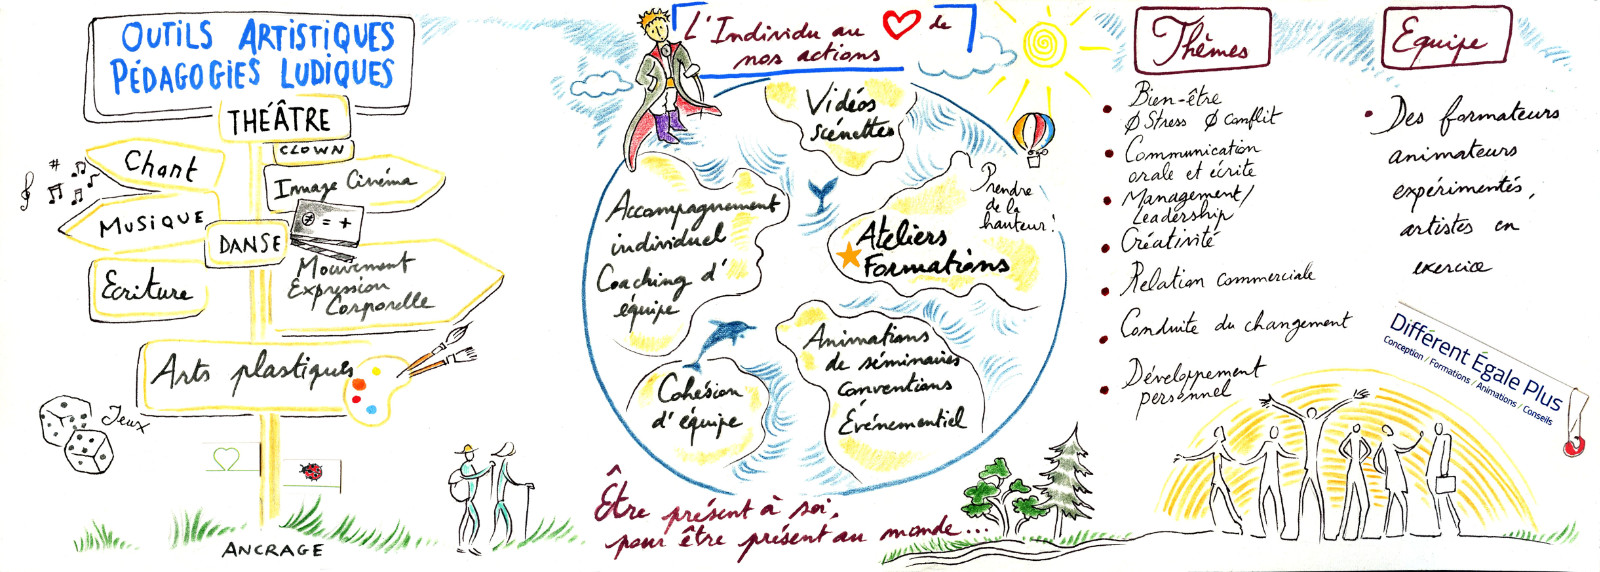 OUTILS ARTISTIQUES
PÉDAGOGIES LUDIQUES
THÉÂTRE
CLOWN
Chant
Image Cinéma
MUSIQUE
≠ = +
DANSE
Ecriture
Mouvement
Expression
Corporelle
Arts plastiques
Jeux
ANCRAGE
L'Individu au ❤ de
nos actions
Vidéos
scénettes
Prendre
de la
hauteur!
Accompagnement
individuel
Coaching d'
équipe
Ateliers
Formations
Cohésion
d'équipe
Animations
de séminaires
conventions
Événementiel
Être présent à soi,
pour être présent au monde...
Thèmes
• Bien-être
Ø Stress Ø conflit
• Communication
orale et écrite
• Management/
Leadership
• Créativité
• Relation commerciale
• Conduite du changement
• Développement
personnel
Equipe
• Des formateurs
animateurs
expérimentés,
artistes en
exercice
Différent Égale Plus
Conception / Formations / Animations / Conseils